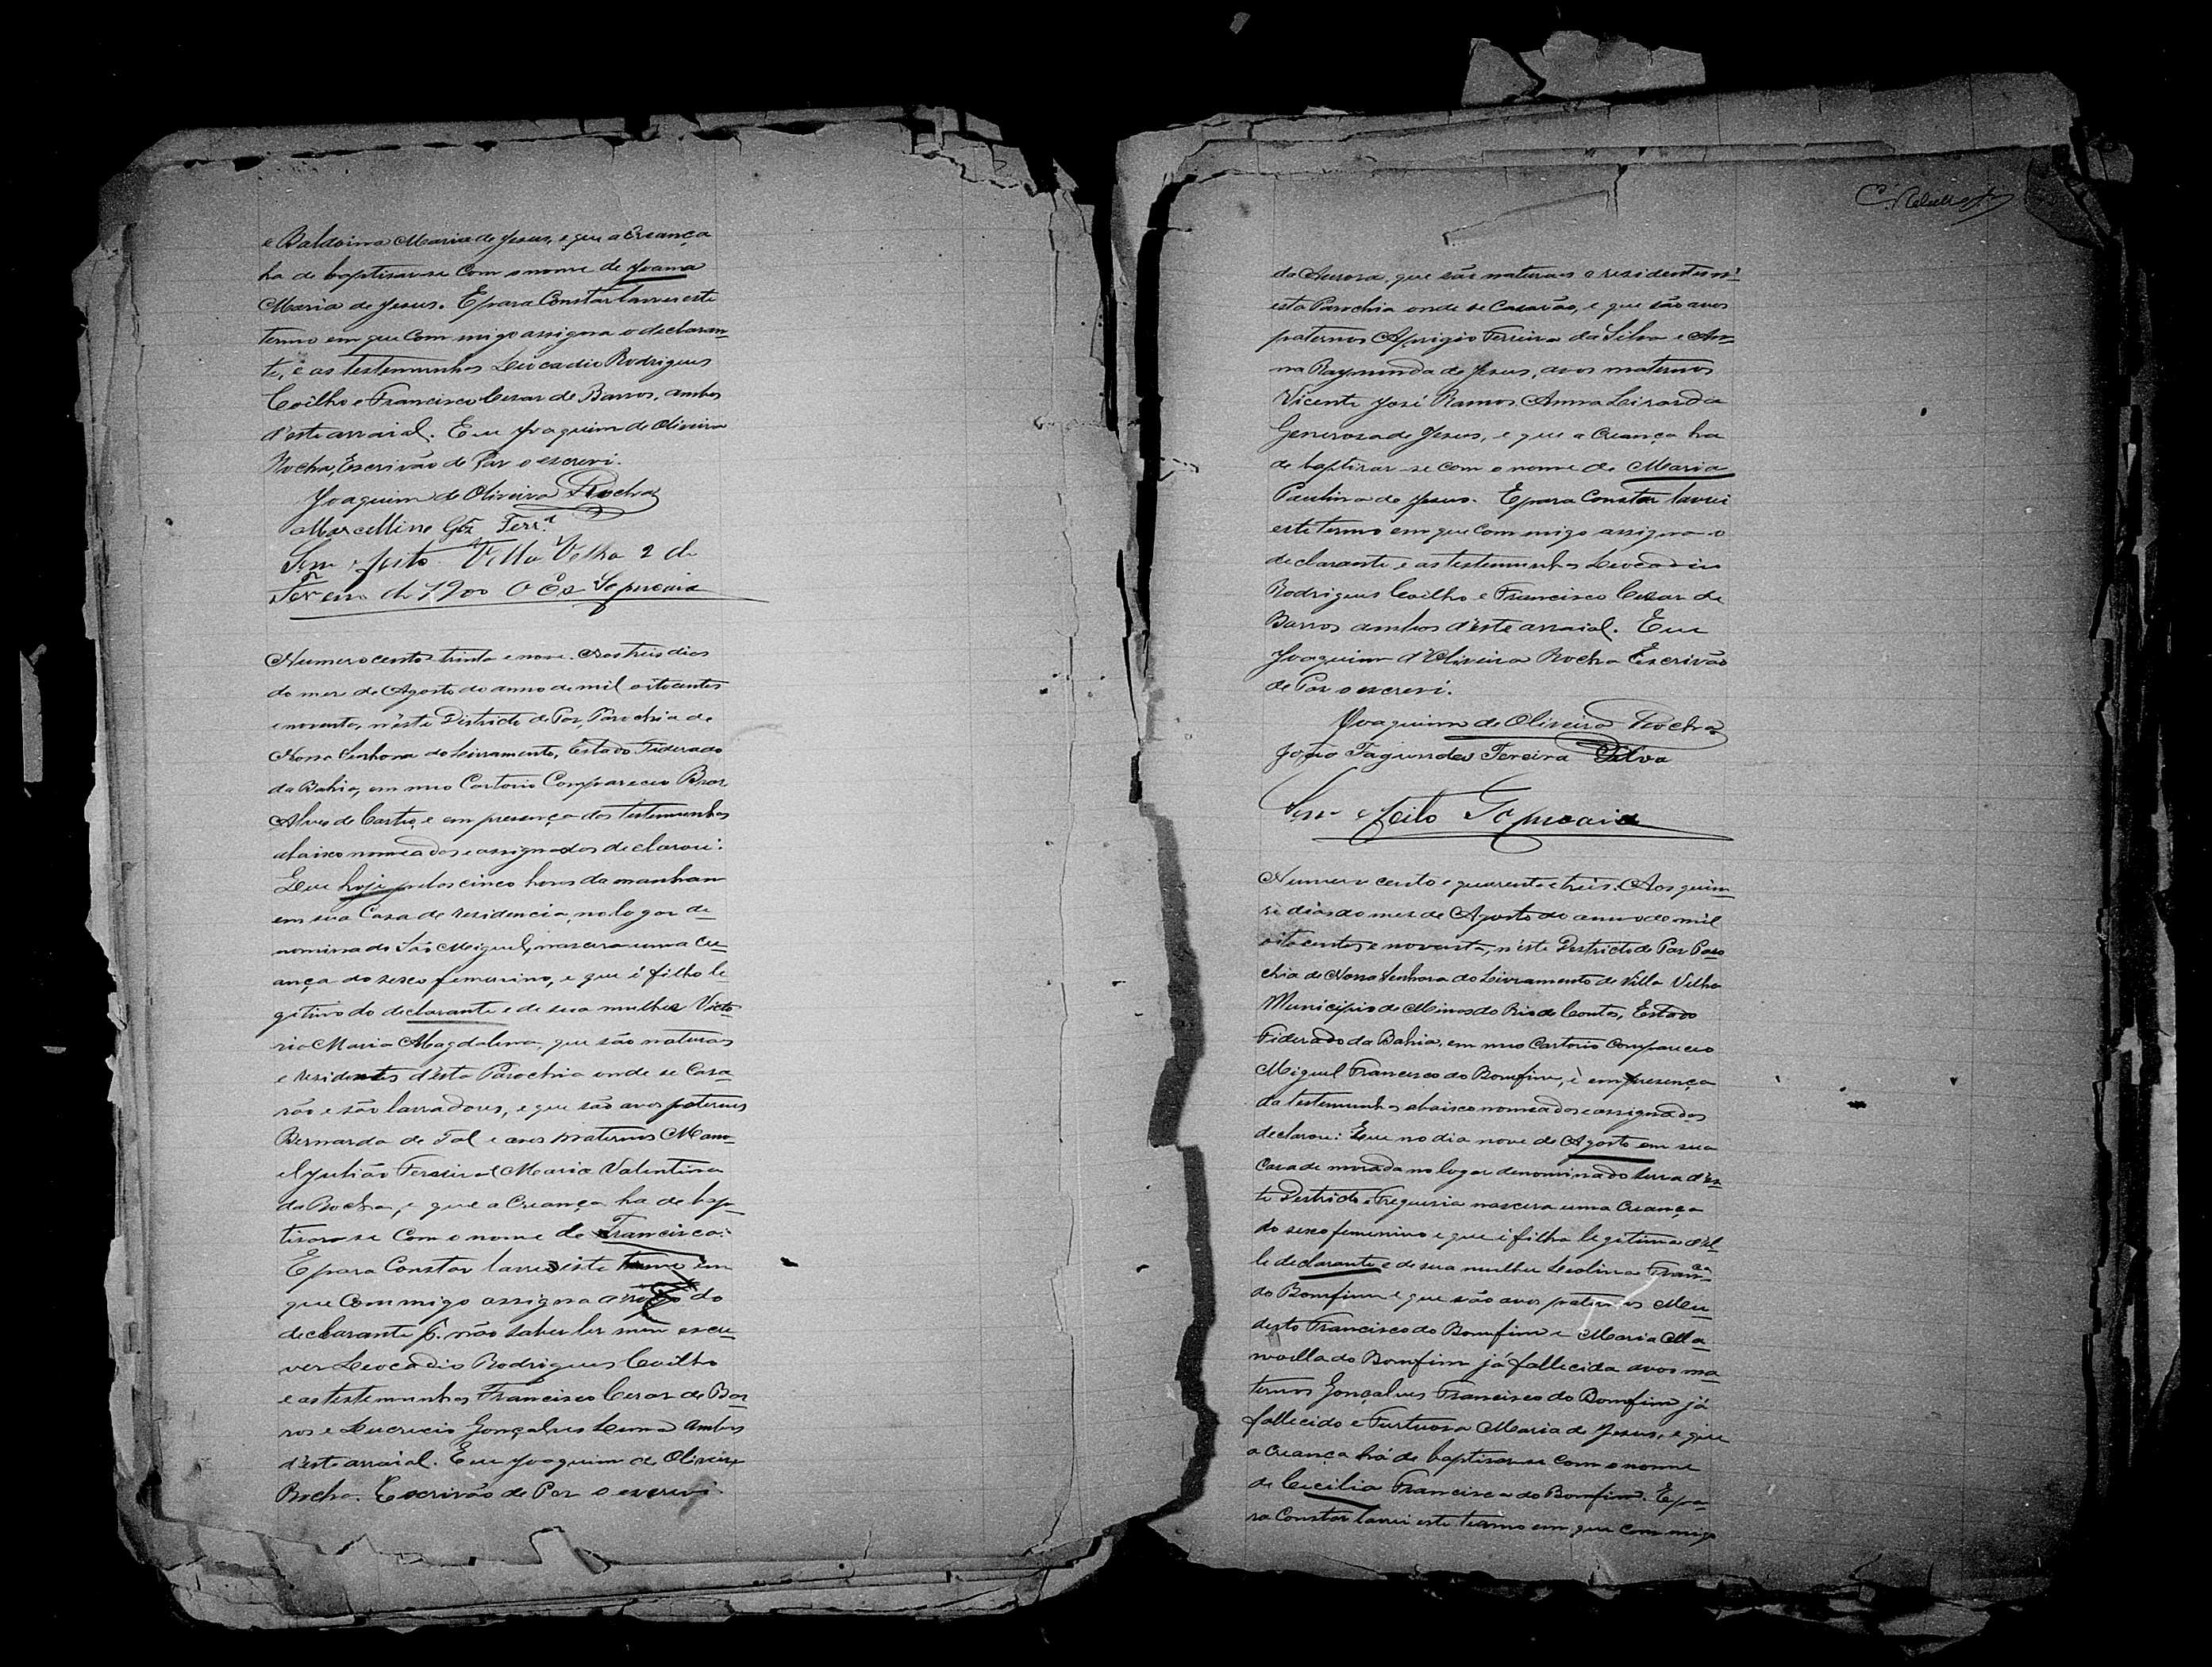 e Baldoina Maria de Jesus, e que a creança
ha de baptisar-se com o nome de Joana
Maria de Jesus. E para Constar lavrei este
termo em que Com migo assigna o declaran-
te, e as testemunhas Leocadio Rodrigues
Coêlho e Francisco Cezar de Barros, ambos
d'este arraial. Eu Joaquim de Oliveira
Rocha, Escrivão de Paz o escrevi.
Joaquim de Oliveira Rocha
Marcellino Glz Ferr.ª
Sem efeito Villa Velha 2 de
Fevereiro de 1900 Sepucaia
Numero cento e trinta e nove. Aos treis dias
do mez de Agosto do anno de mil oitocentos
e noventa, n'este Districto de Paz, Parochia de
Nossa Senhora do Livramento, Estado Federado
da Bahia, em meo Cartorio Compareceo Braz
Alves de Castro, e em presença das testemunhas
abaixo nomeadas e assignadas declarou:
Que hoje pelas cinco horas da manhan
em sua Casa de residencia, no logar de-
nominado São Miguel, nascera uma cre-
ança do sexo femenino, e que é filha le-
gitima do declarante e de sua mulher Victo-
ria Maria Magdalena, que são naturaes
e residentes d'esta Parochia onde se Casa-
rão e são lavradores, e que são avos paternos
Bernarda de Tal e avos maternos Mano-
el Julião Ferreira e Maria Valentina
da Rocha, e que a Creança ha de bap-
tisar-se Com o nome de Francisca.
E para Constar lavrei este termo em
que Commigo assigna a rogo do
declarante p. não saber ler nem escre-
ver Leocadio Rodrigues Coêlho
e as testemunhas Francisco Cezar de Bar-
ros e Lucrecio Gonçalves Lema ambos
d'este arraial. Eu Joaquim de Oliveira
Rocha. Escrivão de Paz o escrevi
C. Rebello
da Aurora, que são naturaes e residentes n'
esta Parochia onde se Casarão, e que são avos
paternos Aprigio Ferreira da Silva e An-
na Raymunda de Jesus, avos maternos
Vicente José Ramos, Anna
Generosa de Jesus, e que a creança ha
de baptisar-se com o nome de Maria
Paulina de Jesus. E para Constar lavrei
este termo em que com migo assigna o
declarante e as testemunhas Leocadio
Rodrigues Coêlho e Francisco Cezar de
Barros ambos d'este arraial. Eu
Joaquim d'Oliveira Rocha Escrivão
de Paz o escrevi.
Joaquim de Oliveira Rocha
João Fagundes Pereira Silva
Sem efeito Sepucaia
Numero cento e quarenta e treis. Aos quin-
se dias do mez de Agosto do anno de mil
oitocentos e noventa, n'este Destricto de Paz Paro
chia de Nossa Senhora do Livramento de Villa Velha
Municipio de Minas do Rio de Contas, Estado
Federado da Bahia, em meo Cartorio Compareceo
Miguel Francisco do Bomfim, e em presença
da testemunhas abaixo nomeados e assignados
declarou: Que no dia nove de Agosto em sua
Casa de morada no logar denominado Serra d'es-
te Destricto e Freguesia nascera uma Creança
do sexo femenino e que é filha legitima d'el-
le declarante e de sua mulher Leolina Fran.ca
do Bomfim e que são avos paternos Mo
desto Francisco do Bomfim e Maria Ma-
noella do Bomfim já fallecida avos ma-
ternos Gonçalves Francisco do Bomfim já
fallecido e Furtuosa Maria de Jesus, e que
a Creança há de baptisar-se com o nome
de Cecilia Francisca do Bomfim. E pa-
ra Constar lavrei este termo em que commigo